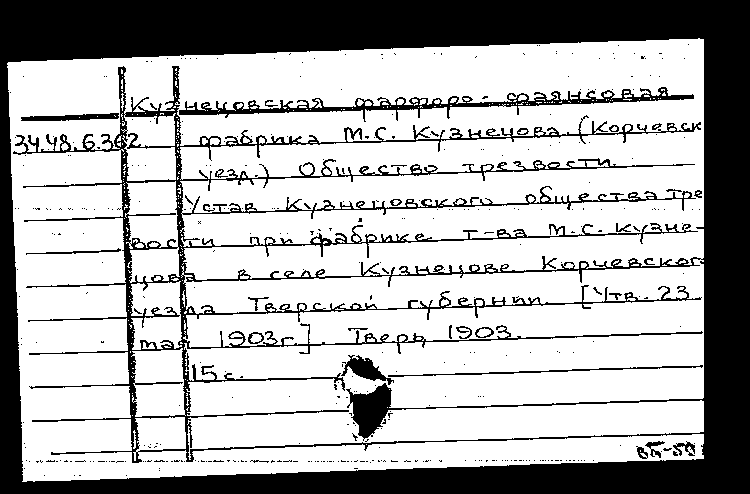 Кузнецовская фарфоро-фаянсовая
34.48.6.362 фабрика М.С. Кузнецова. (Корчевск
уезд.) Общество трезвости.
Устав Кузнецовского общества тре
вости при фабрике т-ва М.С. Кузне-
цова в селе Кузнецове Корчевског
уезда Тверской губернии. [Утв. 23
мая 1903г.]. Тверь, 1903.
15 с.